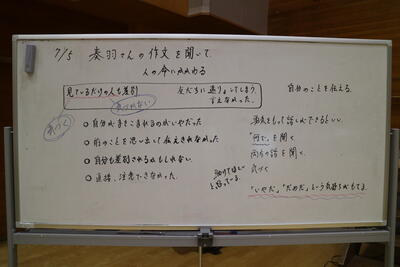 7/5 奏羽さんの作文を聞いて
人の命にかかわる
見ているだけの人も差別 友だちに遠りょしてしまう、
言えなかった。
自分のことを伝える。
気づく
自分がまきこまれるのがいやだった
前のことを思い出して伝えきれなかった
自分も差別されるかもしれない。
直接、注意できなかった。
助けてほしい
と思っている。
勇気をもって話しができるといい。
「何で」を聞く
両方の話を聞く。
気づく
「いやだ」「だめだ」という気持ちがもてる。